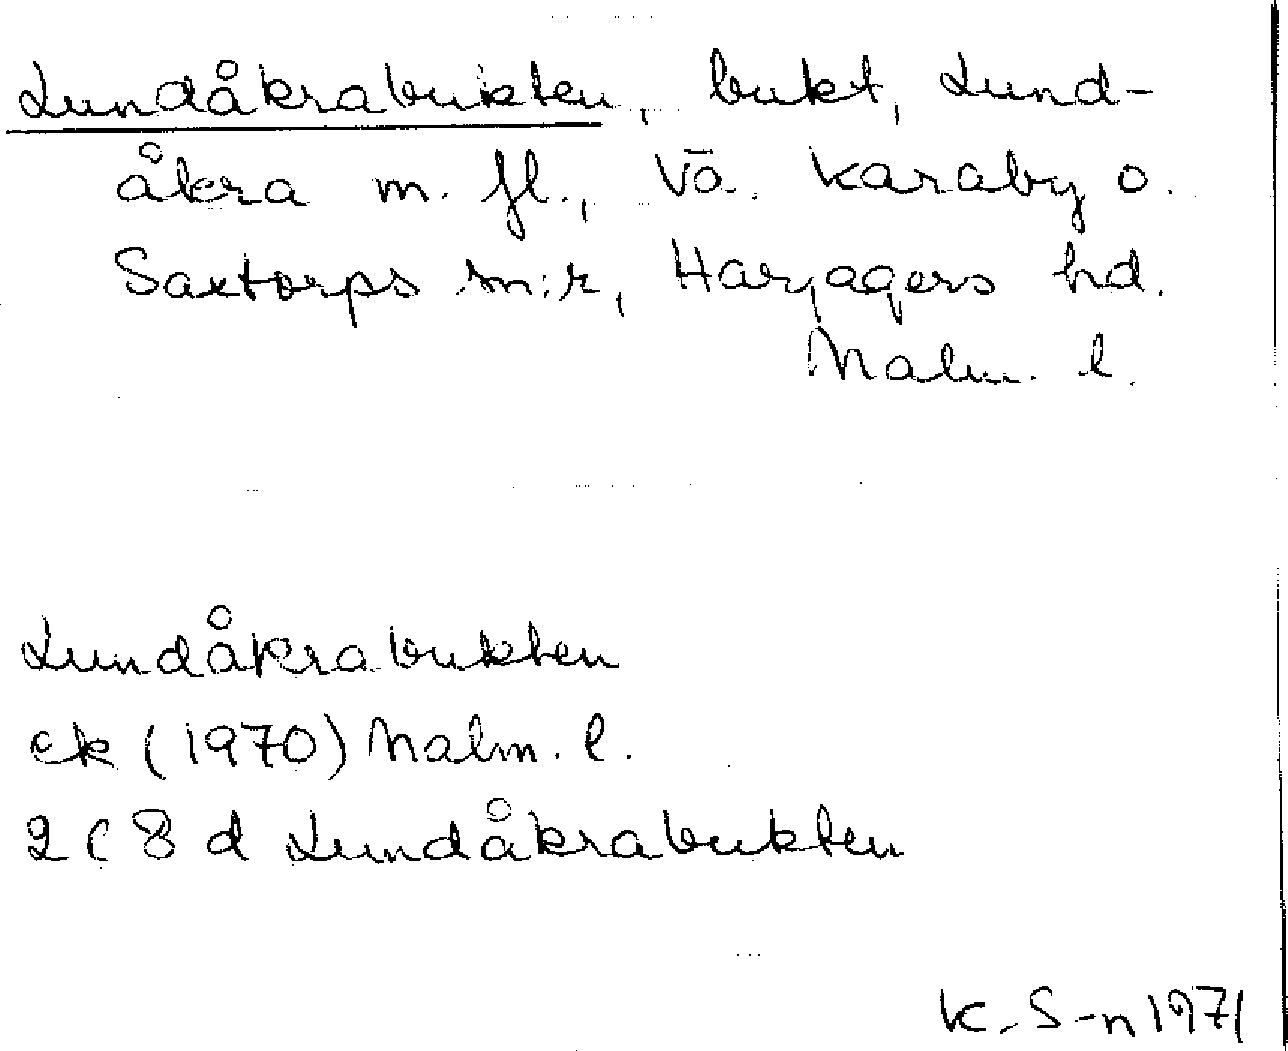 Lundåkrabukten, bukt, Lund-
åkra m. fl., Vä. Karaby o.
Saxtorps sn:r, Harjagers hd.
Malm. l.
Lundåkrabukten
ek (1970) Malm. l.
2 C 8 d Lundåkrabukten
K. S-n 1971